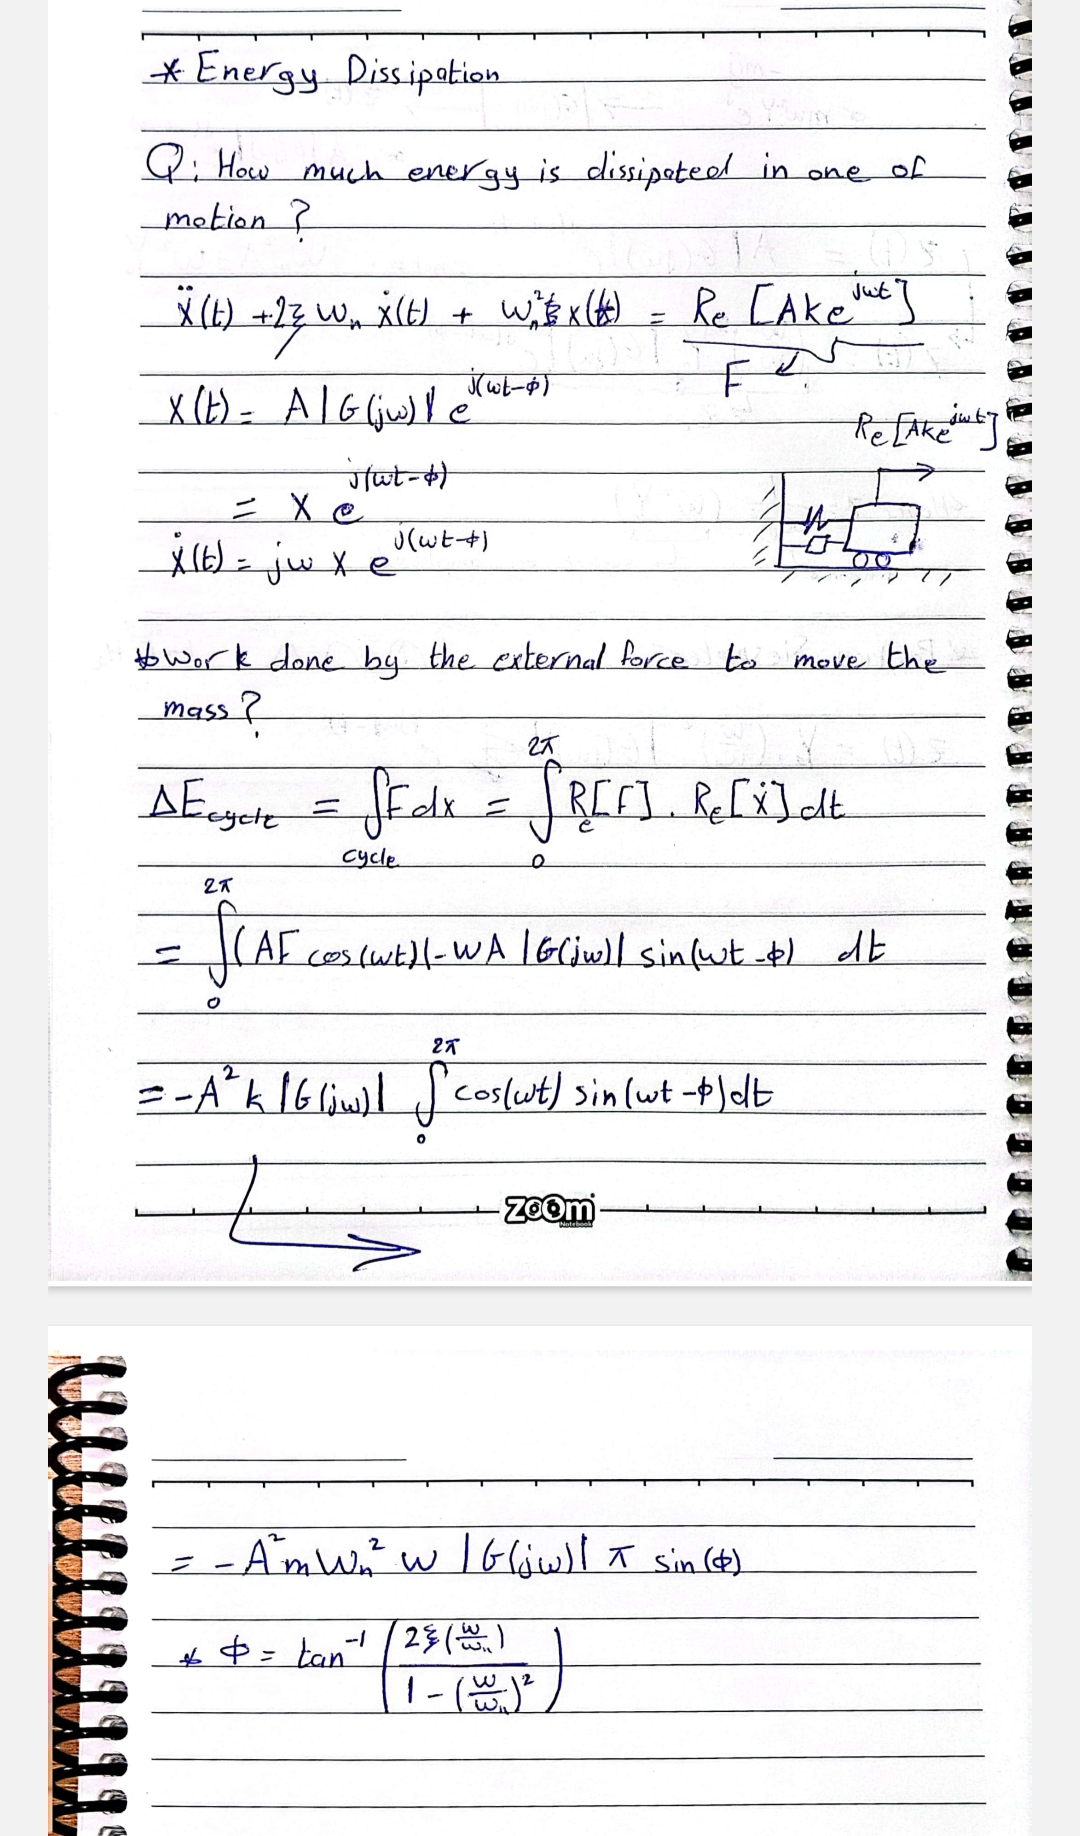 * Energy Dissipation
Q: How much energy is dissipated in one of
motion ?
ẍ(t) + 2ξ Wₙ ẋ(t) + Wₙ² x(t) = Re [Ake^jwt]
F
x(t) = A |G(jw)| e^j(wt-ϕ)
Re[Ake^jwt]
= X e^j(wt-ϕ)
ẋ(t) = jw X e^j(wt-ϕ)
* Work done by the external force to move the
mass ?
ΔE_cycle = ∫_cycle F dx = ∫₀^2π Re[F] . Re[ẋ] dt
= ∫₀^2π (AF cos(wt)(-WA |G(jw)| sin(wt-ϕ) dt
= -A² k |G(jw)| ∫₀^2π cos(wt) sin(wt-ϕ)dt
zoom
Notebook
= -A² m Wₙ² w |G(jw)| π sin(ϕ)
* ϕ = tan⁻¹ (2ξ(w/wₙ) / 1 - (w/wₙ)²)